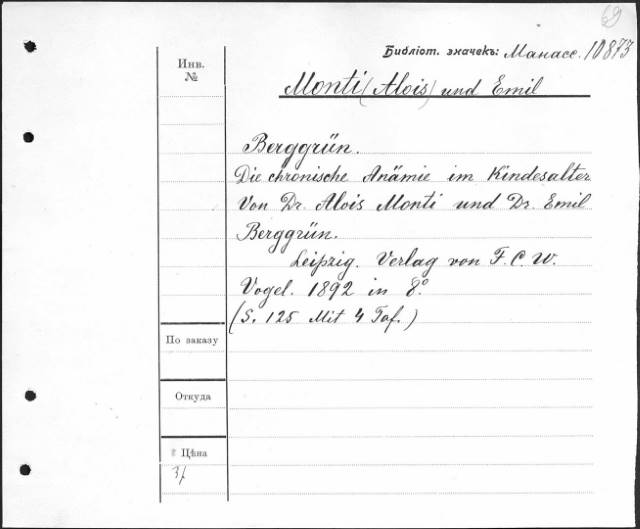 69
Библіот. значекъ: Манасс. 10873
Инв.
№
Monti (Alois) und Emil
Berggrün.
Die chronische Anämie im Kindesalter
Von Dr. Alois Monti und Dr. Emil
Berggrün.
Leipzig. Verlag von F. C. W.
Vogel. 1892 in 8º.
(S. 125 Mit 4 Taf.)
По заказу
Откуда
Цѣна